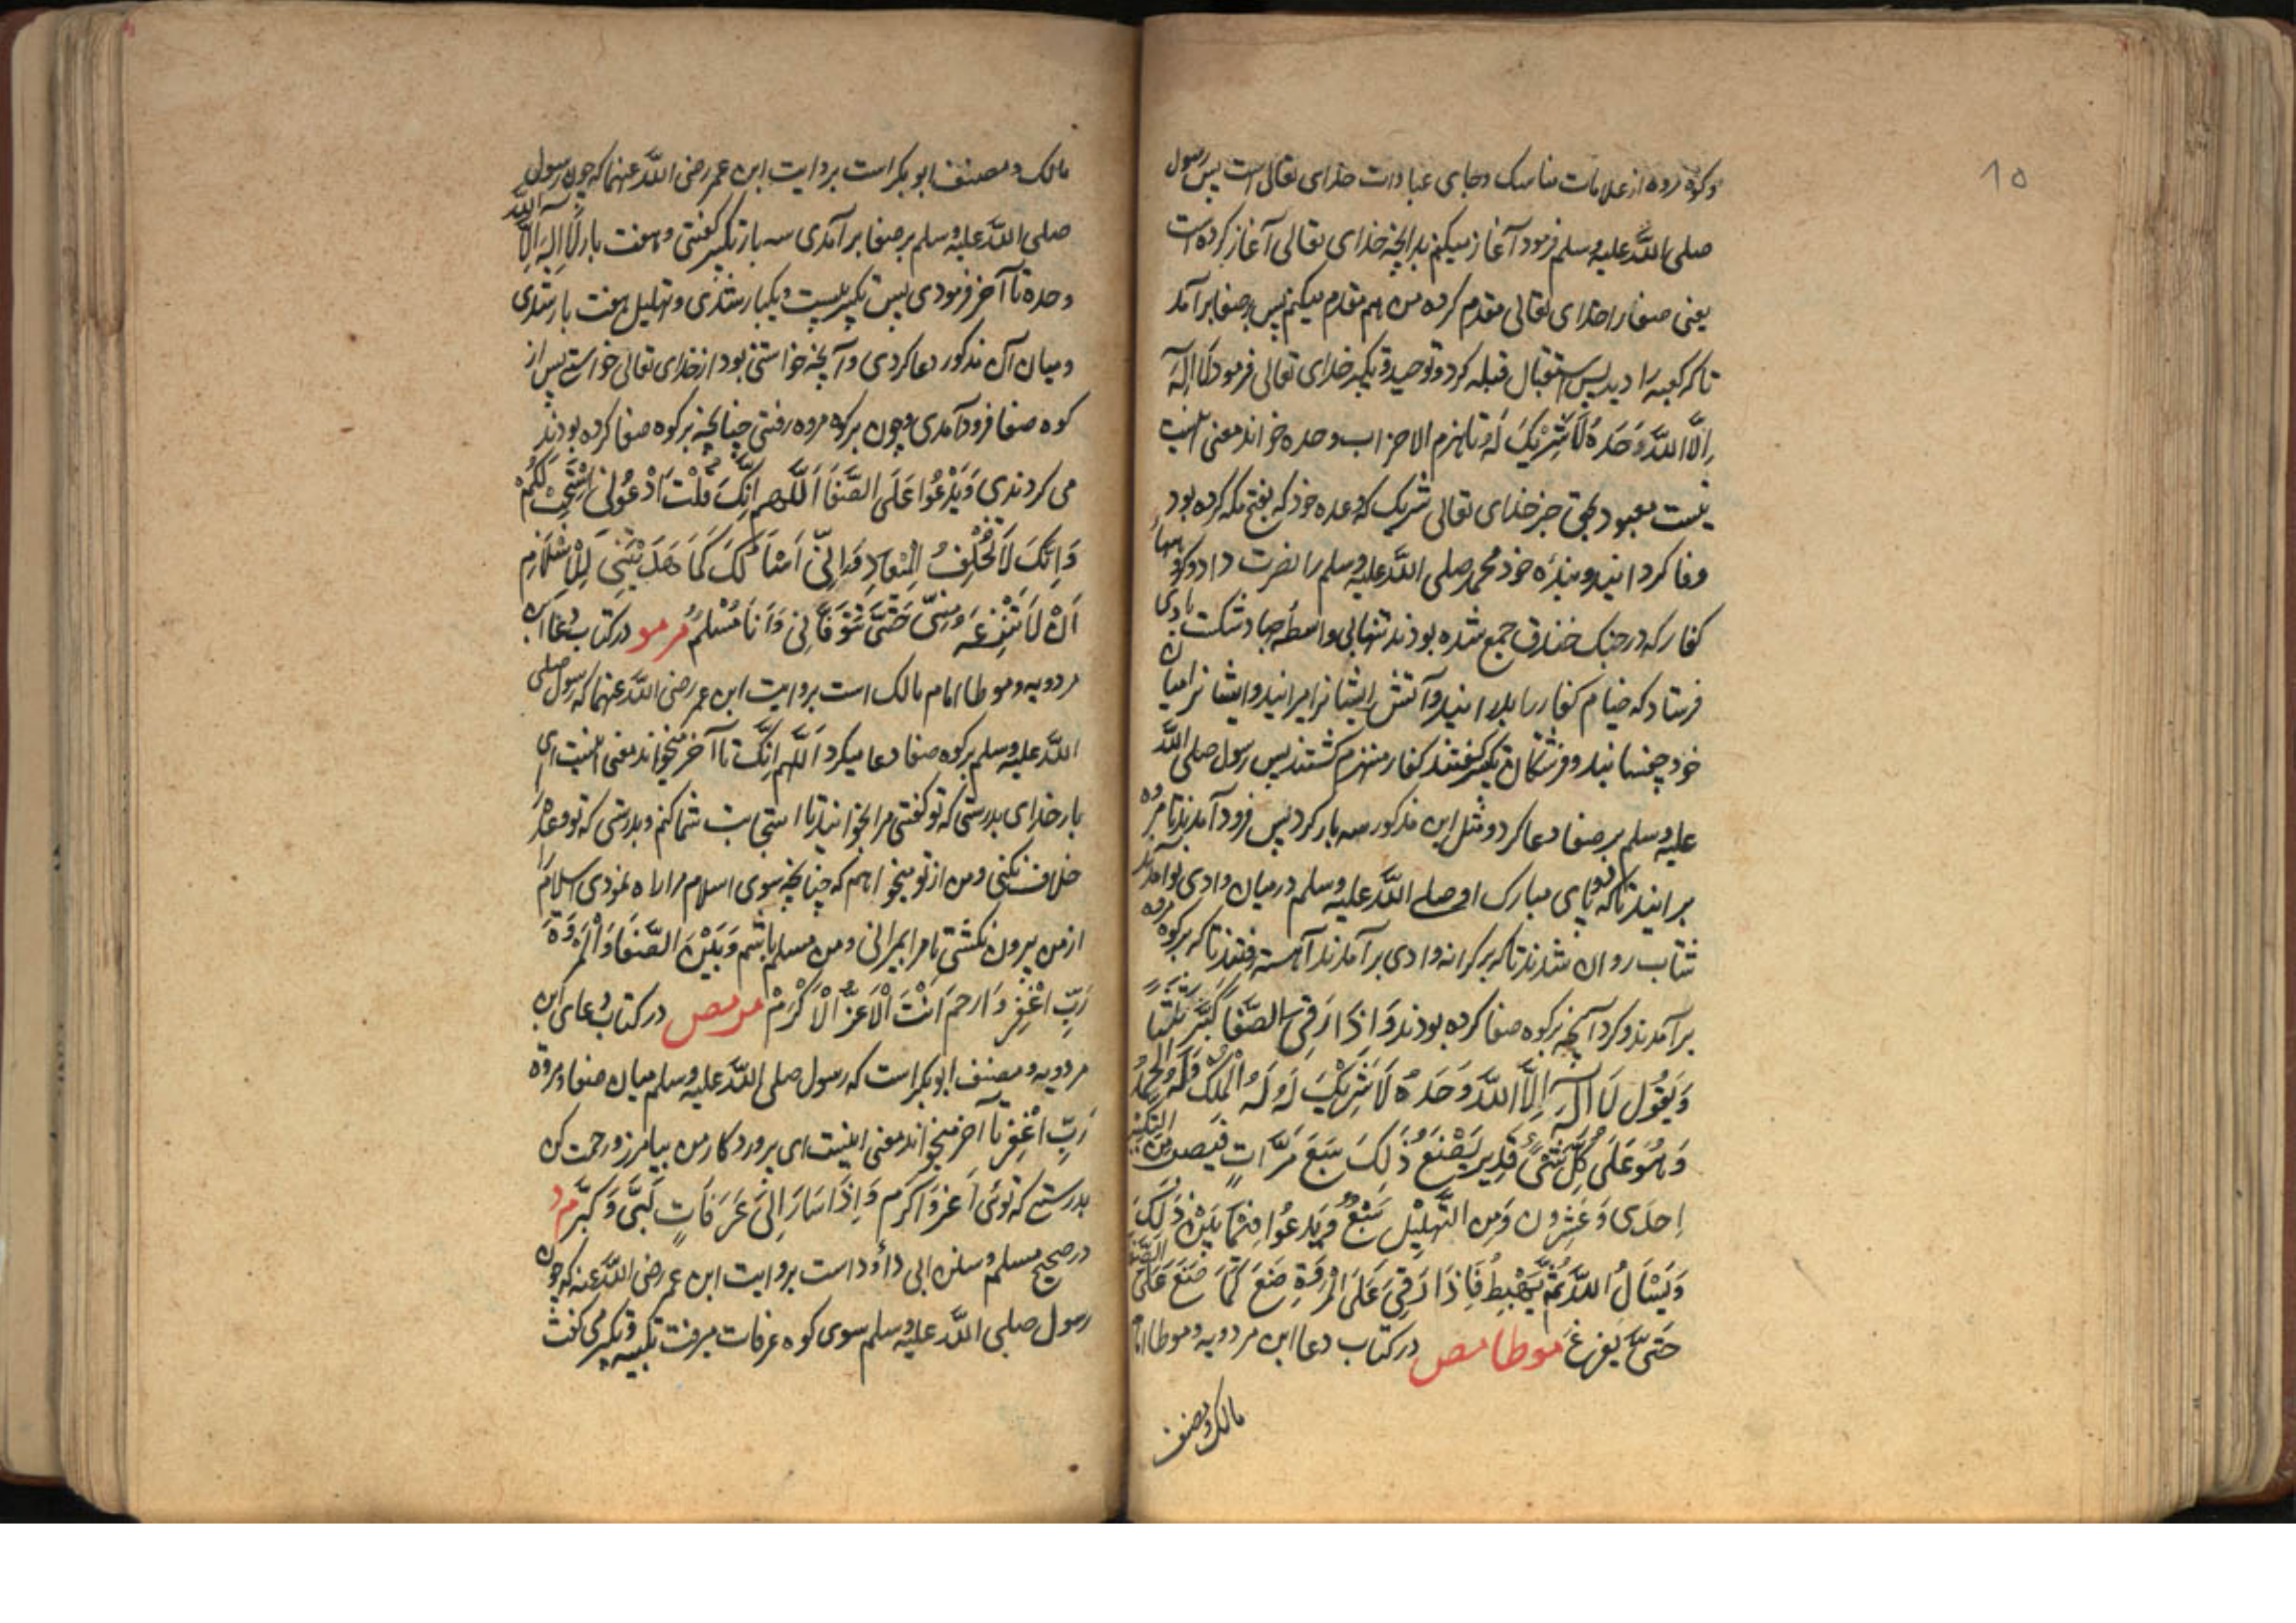 10
وکوه مروه از علامات مناسک وجای عبادات خدای تعالی است پس رسول
صلی الله علیه وسلم فرمود آغاز میکنم بدانچه خدای تعالی آغاز کرده است
یعنی صفا را خدای تعالی مقدم کرده من هم مقدم میکنم پس بر صفا برآمد
تا که کعبه را دید پس استقبال قبله کرد وتوحید وتکبیر خدای تعالی فرمود لَا اِلٰهَ
اِلَّا اللّٰهُ وَحْدَهُ لَا شَرِيْكَ لَهُ تا هزم الاحزاب وحده خواند معنی اینست
نیست معبود بحق جز خدای تعالی شریک که وعده خود که بفتح مکه کرده بود
وفا کردانید وبنده خود محمد صلی الله علیه وسلم را نصرت داد وکروهها
کفار که در جنک خندق جمع شده بودند تنها بی واسطه صبا دشکست بادی
فرستاد که خیام کفار را بدرانید وآتش ایشانرا میرانید وایشانرا میان
خود چفسانید وفرشتکان تکبیر گفتند کفار منهزم کشتند پس رسول صلی الله
علیه وسلم بر صفا دعا کرد ومثل این مذکور سه بار کرد پس فرود آمدند تا مروه
برانید تا که پای مبارک او صلی الله علیه وسلم در میان وادی بوامدند
شتاب روان شدند تا که بر کرانه وادی برآمدند آهسته رفتند تا که بر کوه مروه
برآمدند وکرد آنچه بر کوه صفا کرده بودند وَاِذَا رَقِیَ الصَّفَا كَبَّرَ ثَلٰثًا
وَيَقُوْلُ لَا اِلٰهَ اِلَّا اللّٰهُ وَحْدَهُ لَا شَرِيْكَ لَهُ لَهُ الْمُلْكُ وَلَهُ الْحَمْدُ
وَهُوَ عَلٰى كُلِّ شَیْءٍ قَدِيْرٌ يَصْنَعُ ذٰلِكَ سَبْعَ مَرَّاتٍ فيصير من التكبير
اِحْدٰى وَعِشْرُونَ وَمِنَ التَّهْلِيْلِ سَبْعٌ وَيَدْعُوا فِيْمَا بَيْنَ ذٰلِكَ
وَيَسْاَلُ اللّٰهَ ثُمَّ يَهْبِطُ فَاِذَا رَقِیَ عَلَى الْمَرْوَةِ صَنَعَ كَمَا صَنَعَ عَلَى الصَّفَا
حَتّٰى يَفْرُغَ موطا مص در کتاب دعا ابن مردویه وموطا امام
مالک ومصنف
مالک ومصنف ابو بکر است بروایت ابن عمر رضی الله عنهما که چون رسول
صلی الله علیه وسلم بر صفا برآمدی سه بار تکبیر گفتی وهفت بار لَا اِلٰهَ اِلَّا اللّٰهُ
وحده تا آخر فرمودی پس تکبیر بیست ویکبار شدی وتهلیل هفت بار شدی
ومیان آن مذکور دعا کردی وآنچه خواستنی بود از خدای تعالی خواستی پس از
کوه صفا فرود آمدی وچون بر کوه مروه رفتی چنانچه بر کوه صفا کرده بودند
می کردندی وَيَدْعُوْا عَلَى الصَّفَا اَللّٰهُمَّ اِنَّكَ قُلْتَ اُدْعُوْنِیْ اَسْتَجِبْ لَكُمْ
وَاِنَّكَ لَا تُخْلِفُ الْمِيْعَادِ وَاِنِّیْ اَسْاَلُكَ كَمَا هَدَيْتَنِیْ لِلْاِسْلَامِ
اَنْ لَا تَنْزِعَهُ مِنِّیْ حَتّٰى تَتَوَفَّانِیْ وَاَنَا مُسْلِمٌ مر مو در کتاب دعا ابن
مردویه وموطا امام مالک است بروایت ابن عمر رضی الله عنهما که رسول صلی
الله علیه وسلم بر کوه صفا دعا میکرد اَللّٰهُمَّ اِنَّكَ تا آخر میخواند معنی اینست ای
بار خدای بدرستی که تو کفتی مرا بخوانید تا استجابت شما کنم وبدرستی که تو وعده را
خلاف نکنی ومن از تو میخواهم که چنانچه سوی اسلام مرا راه نمودی اسلام را
از من بیرون نکشی تا مرا بمیرانی ومن مسلم باشم وَبَيْنَ الصَّفَا وَالْمَرْوَةَ
رَبِّ اغْفِرْ وَارْحَمْ اَنْتَ الْاَعَزُّ الْاَكْرَمْ مر مص در کتاب دعای ابن
مردویه ومصنف ابو بکر است که رسول صلی الله علیه وسلم میان صفا ومروة
رَبِّ اغْفِرْ تا آخر میخواند معنی اینست ای پروردکار من بیامرز ورحمت کن
بدرستی که توئی اعز واکرم وَاِذَا سَارَ اِلٰى عَرَفَاتٍ لَبّٰى وَكَبَّرَ م د
در صحیح مسلم وسنن ابی داؤد است بروایت ابن عمر رضی الله عنه که چون
رسول صلی الله علیه وسلم سوی کوه عرفات میرفت تلبیه وتکبیر می گفت